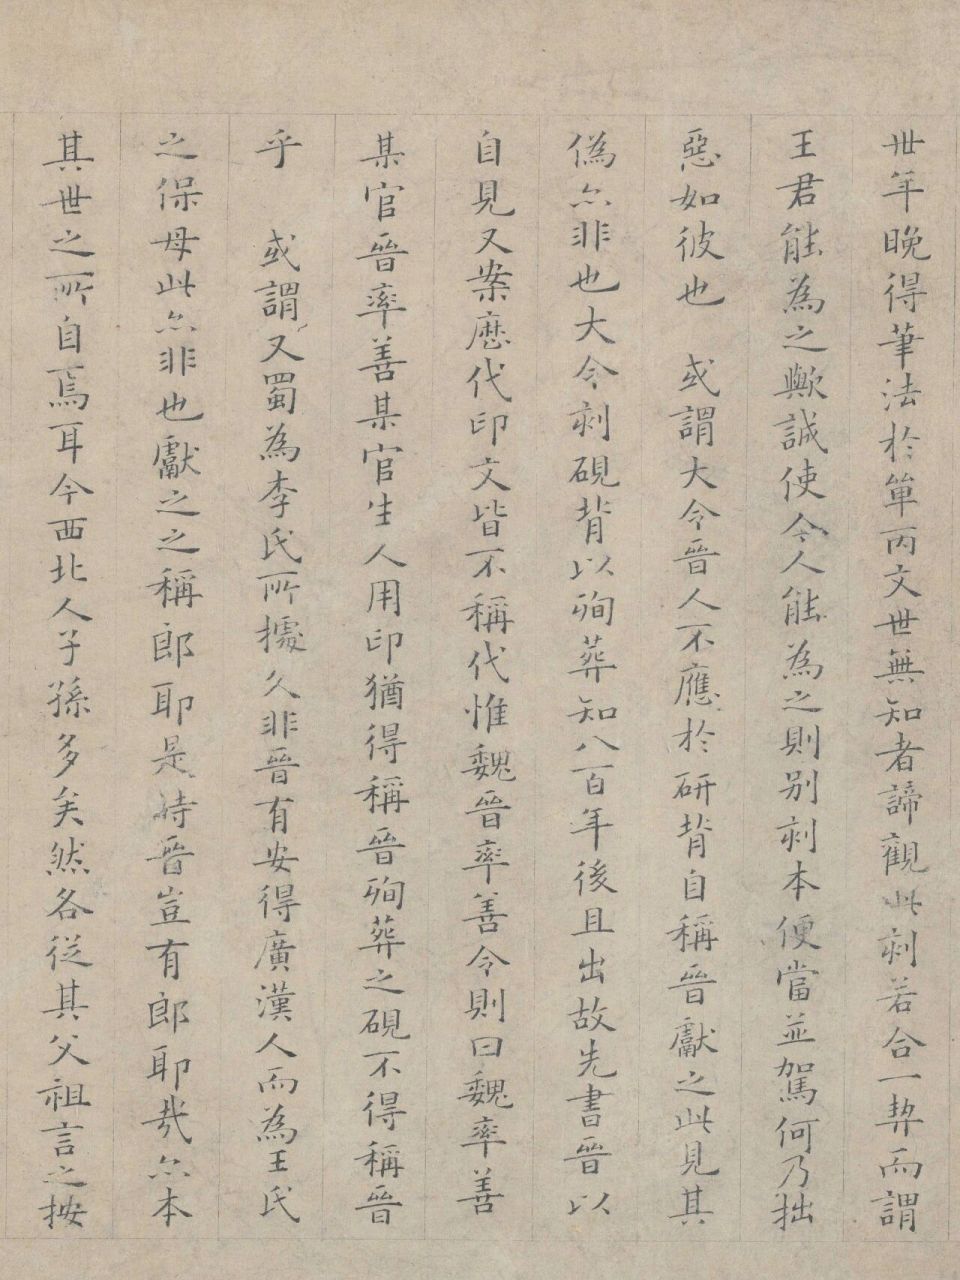 卅年晚得筆法於單丙文世無知者諦觀此刻若合一契而謂
王君能為之歟誠使今人能為之則別刻本便當並駕何乃拙
惡如彼也　或謂大令晉人不應於研背自稱晉獻之此見其
偽亦非也大令刻硯背以殉葬知八百年後且出故先書晉以
自見又案歷代印文皆不稱代惟魏晉率善令則曰魏率善
某官晉率善某官生人用印猶得稱晉殉葬之硯不得稱晉
乎　或謂又蜀為李氏所據久非晉有安得廣漢人而為王氏
之保母此亦非也獻之之稱郎耶是時晉豈有郎耶哉亦本
其世之所自焉耳今西北人子孫多矣然各從其父祖言之按